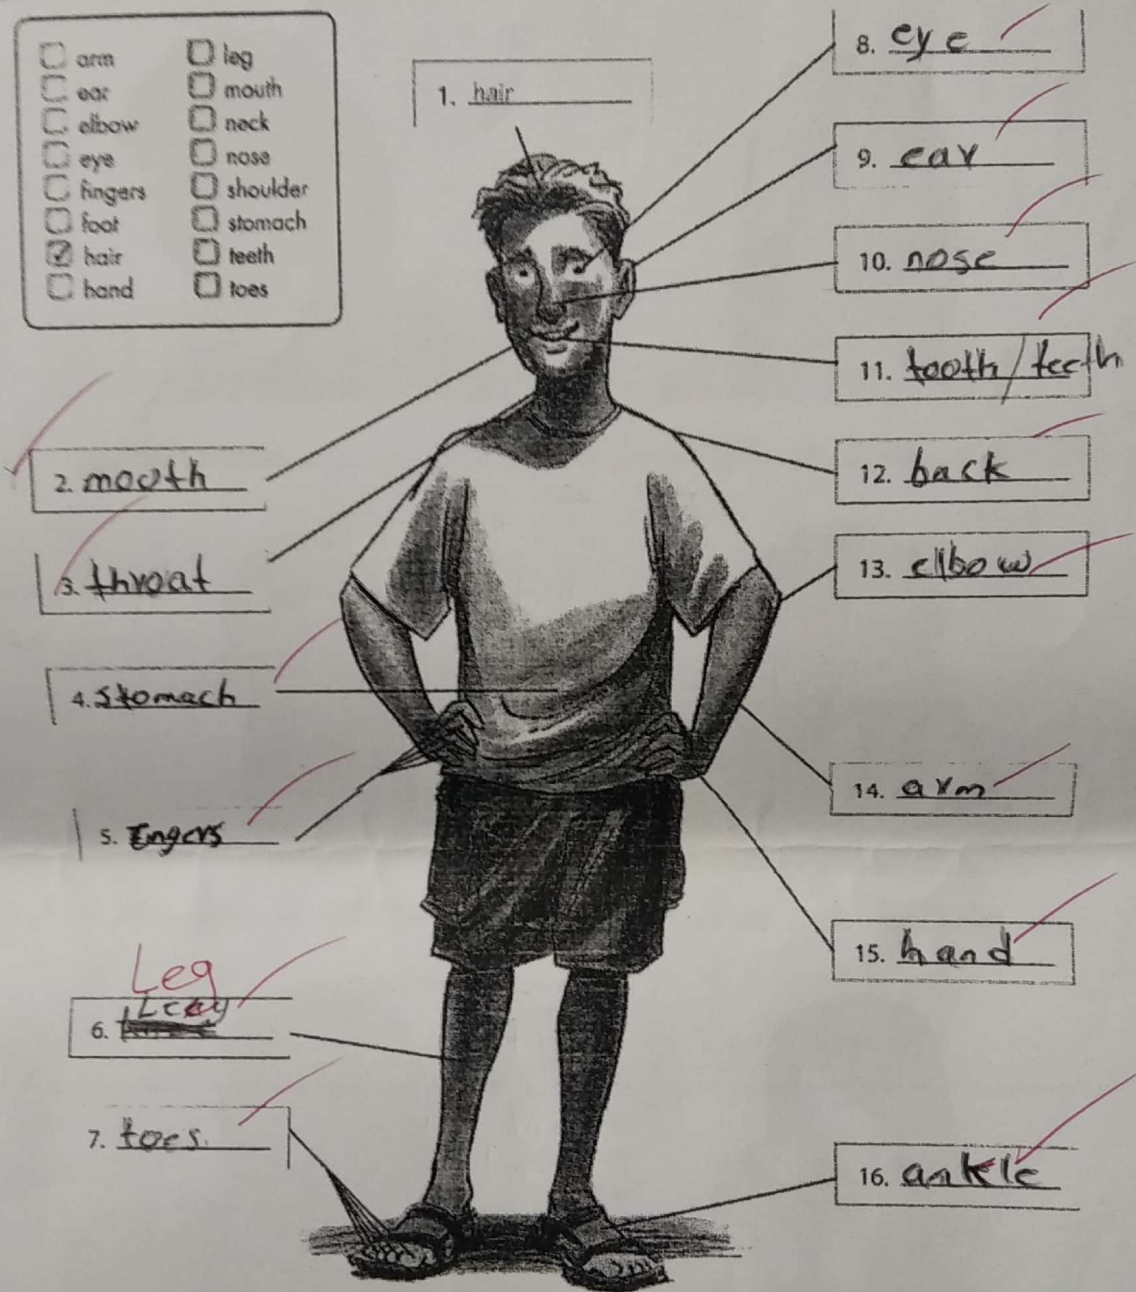 arm
ear
elbow
eye
fingers
foot
hair
hand
leg
mouth
neck
nose
shoulder
stomach
teeth
toes
1. hair
2. mooth
3. throat
4. stomach
5. Engers
Leg
6. Leay
7. toes.
8. eye
9. ear
10. nose
11. tooth/teeth
12. back
13. elbow
14. arm
15. hand
16. ankle